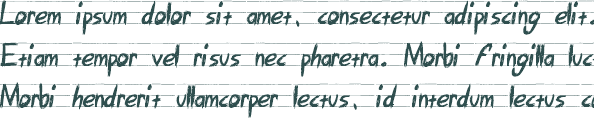 Lorem ipsum dolor sit amet, consectetur adipiscing elit.
Etiam tempor vel risus nec pharetra. Morbi fringilla luc
Morbi hendrerit ullamcorper lectus, id interdum lectus co